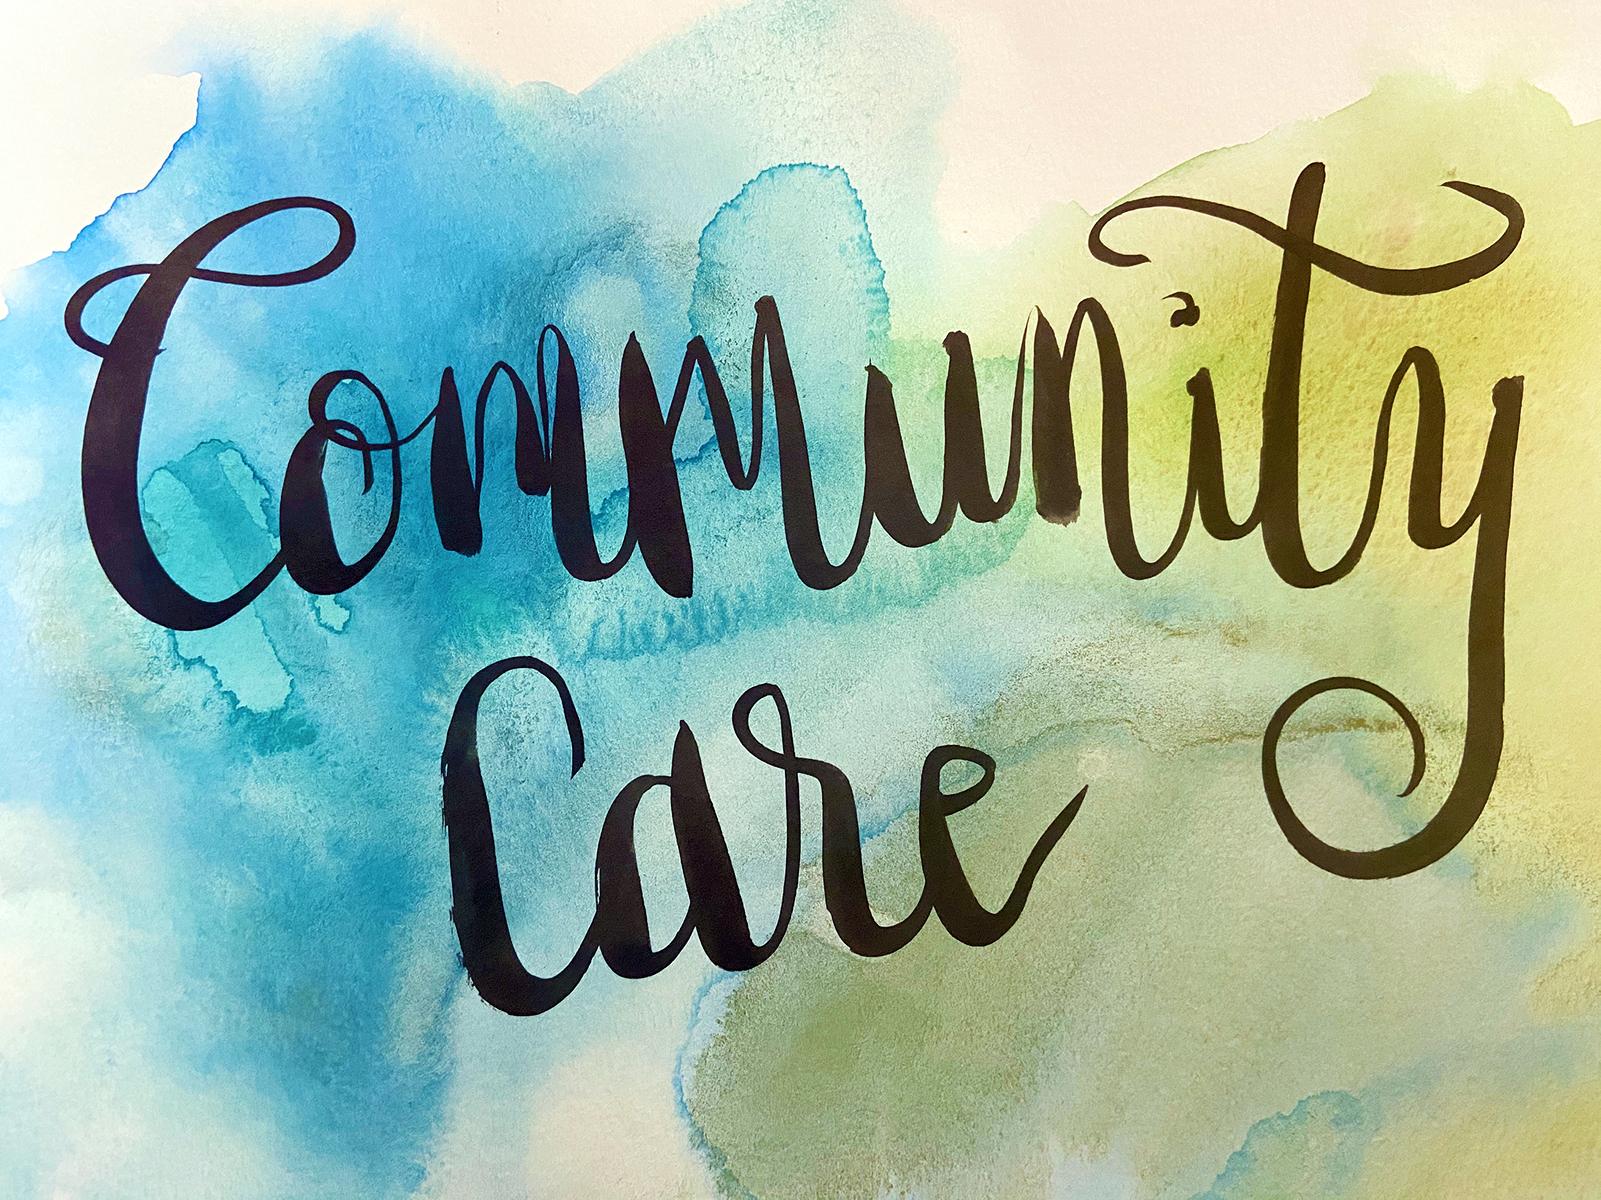 Community
Care